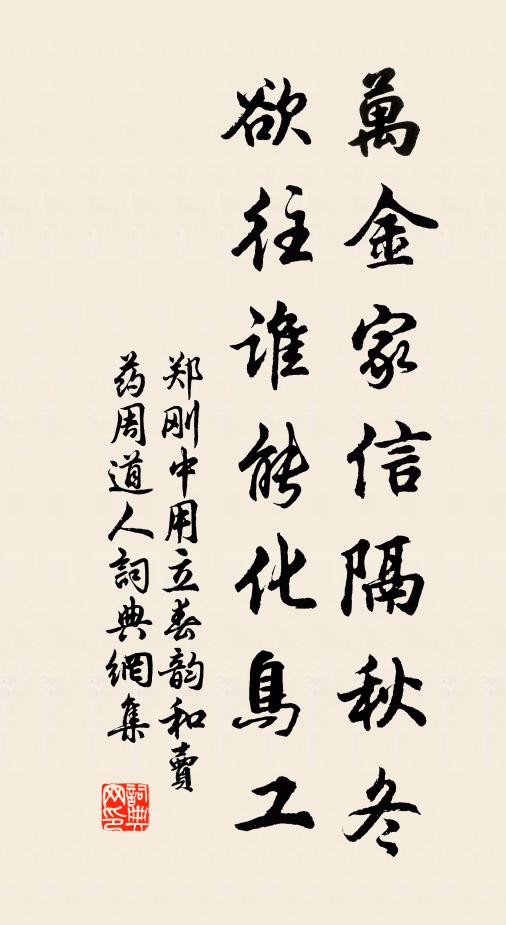 萬金家信隔秋冬
欲往誰能化鳥工
郑刚中用立春韵和賣
药周道人詞典網集
詞典
网印